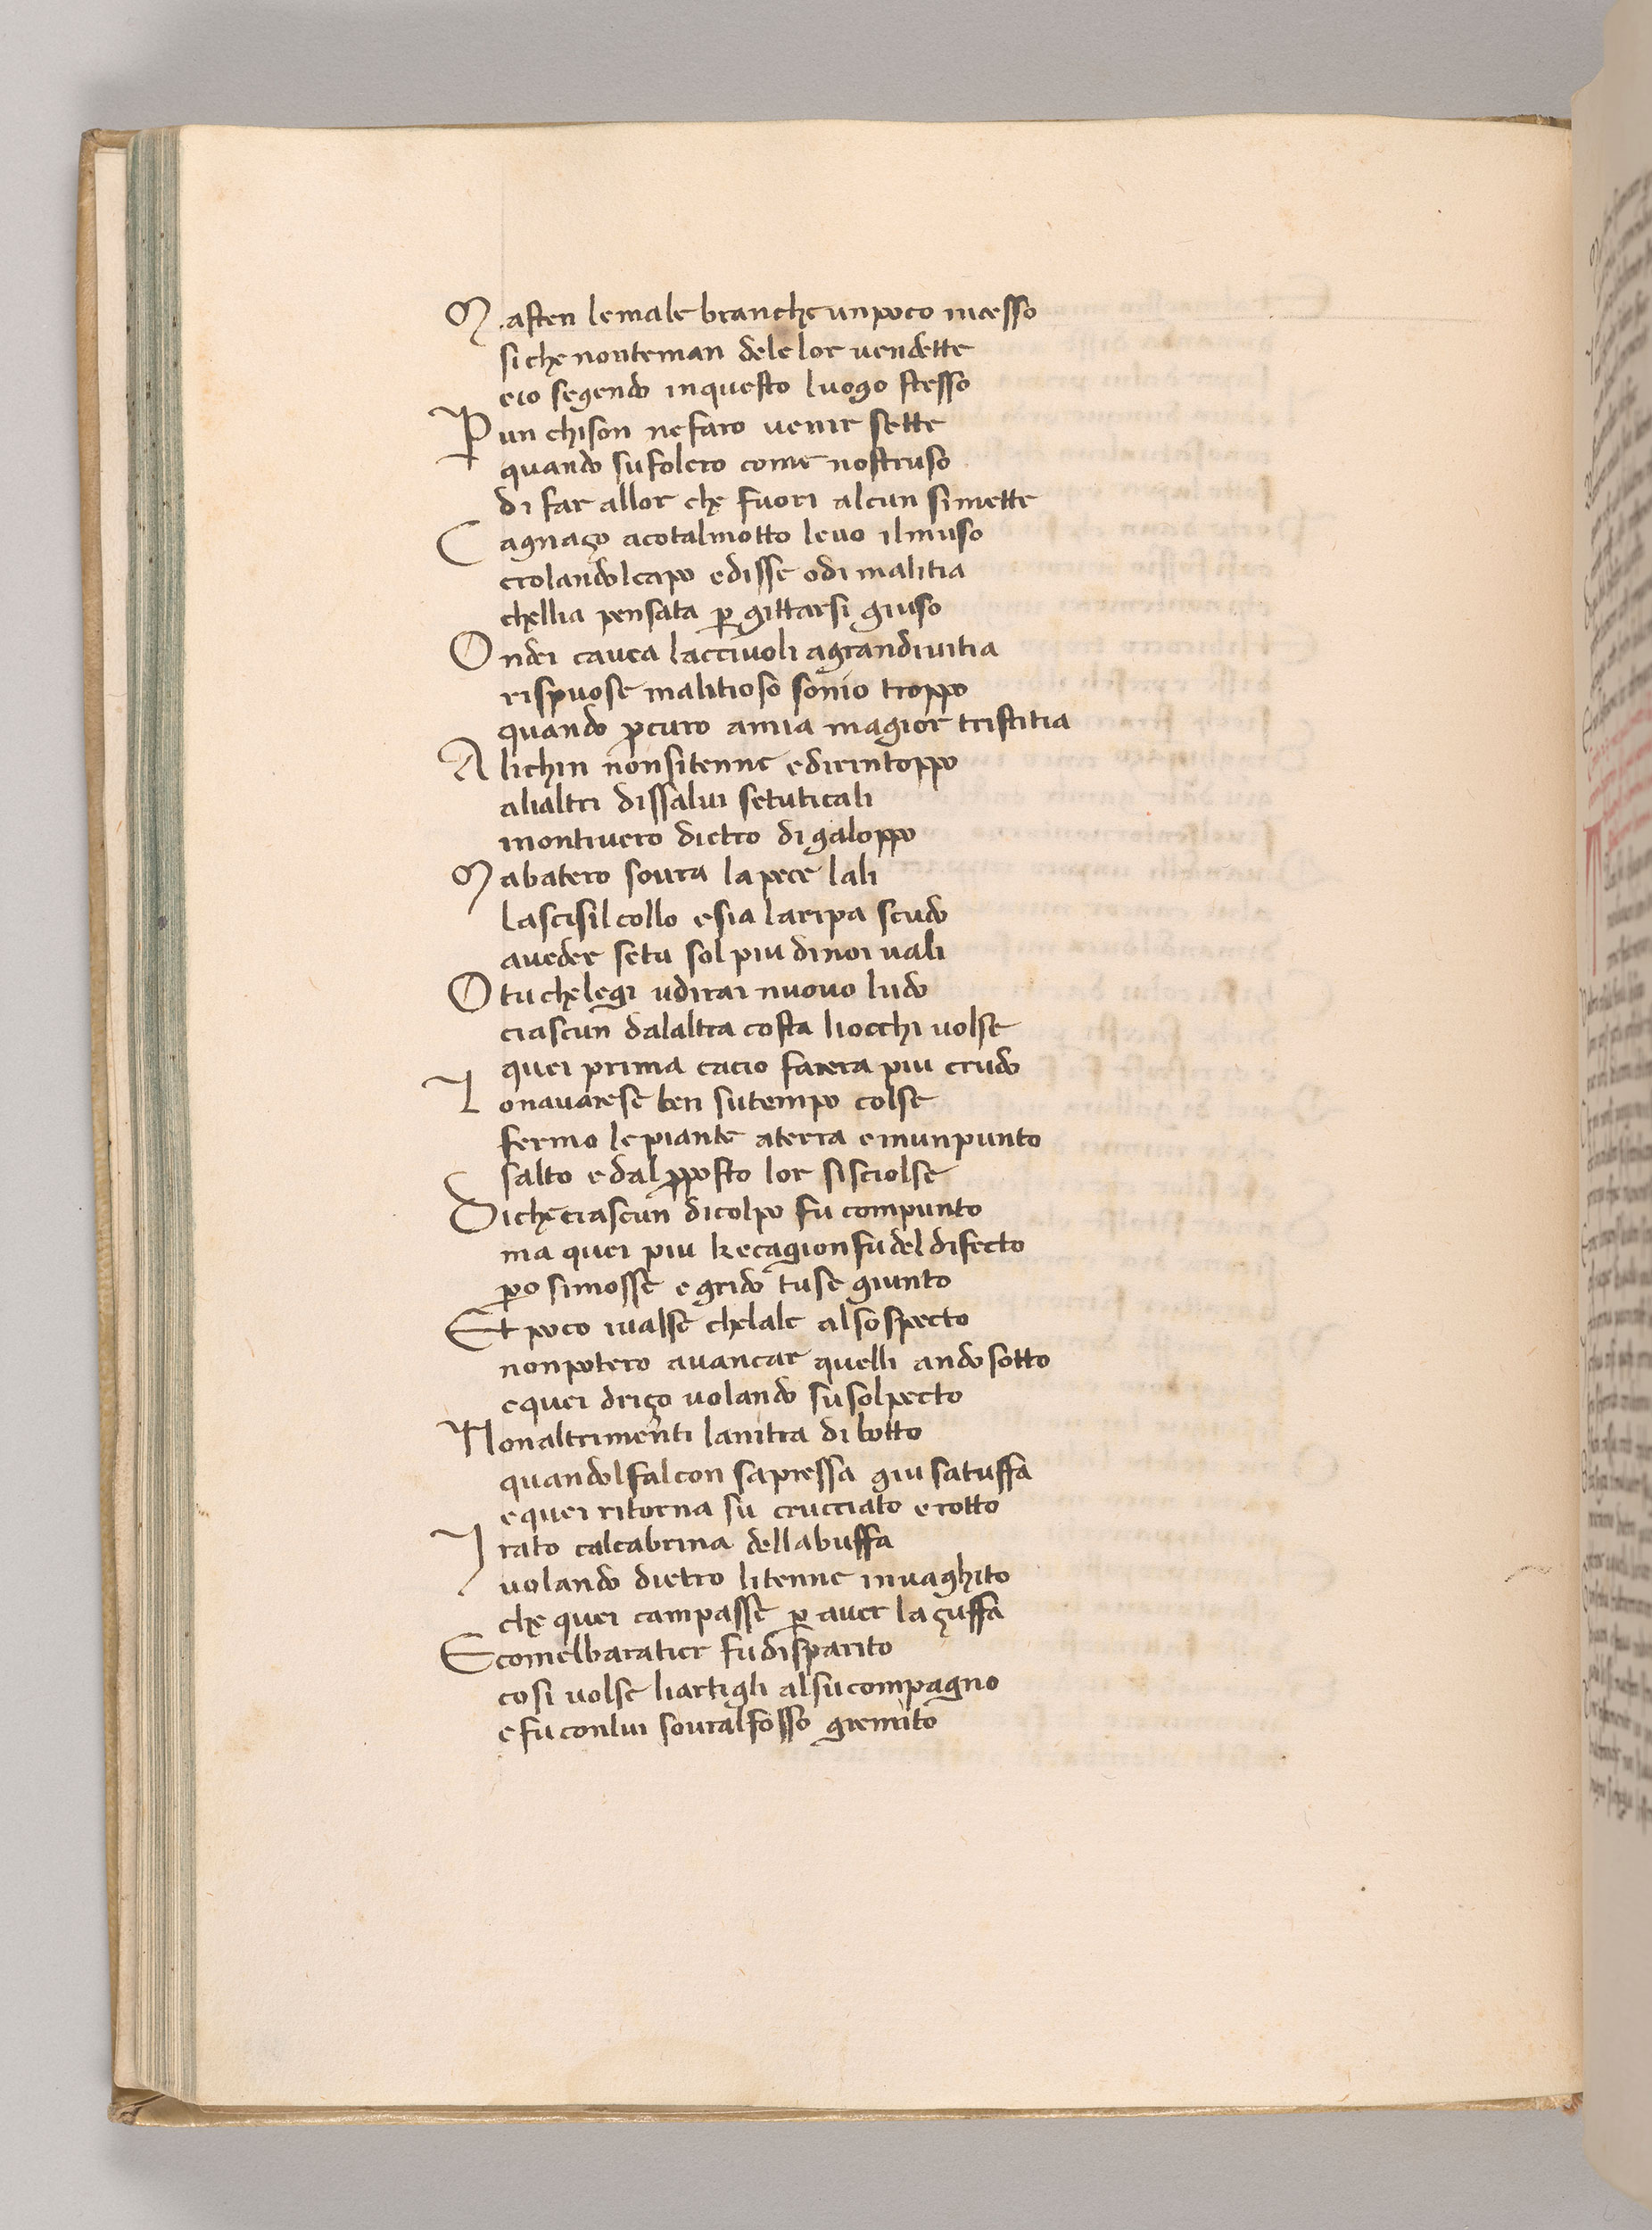 M asten lemale branche unpoco incesso
siche nonteman dele lor vendette
eio segendo inquesto luogo stesso
P un chison nefaro venir sette
quando sufolero come nostruso
di far allor che fuori alcun simette
C agnaço acotalmotto levo ilmuso
crolandolcapo edisse odi malitia
chellia pensata p gittarsi giuso
O ndei cavea laccivoli agrandivitia
rispuose malitioso sonio troppo
quando pcuro amia magior tristitia
A lichin nonsitenne edirintoppo
alialtri dissalui setuticali
montivero dietro di galoppo
M abatero sovra lapece lali
lascisilcollo esia laripa scudo
aveder setu sol piu dinoi vali
O tu chelegi udirai nuovo ludo
ciascun dalaltra costa liocchi volse
quei prima cacio farera piu crudo
L onavarese ben sutempo colse
fermo lepiante aterra emunpunto
salto edal pposto lor sisciolse
D iche ciascun dicolpo fu compunto
ma quei piu kecagion fu del difecto
po simosse egrido tuse giunto
Et poco ivalse chelale alsospecto
nonpotero avancar quelli ando sotto
equei driço volando susolpecto
Nonaltrimenti lanitra di botto
quandolfalcon sapressa giu satuffa
equei ritorna su crucciato erotto
I rato calcabrina dellabuffa
volando dietro litenne invaghito
che quei campasse p aver laçuffa
Ecomelbaratier fu disparito
cosi volse liartigli alsucompagno
efuconlui souralfosso gremito